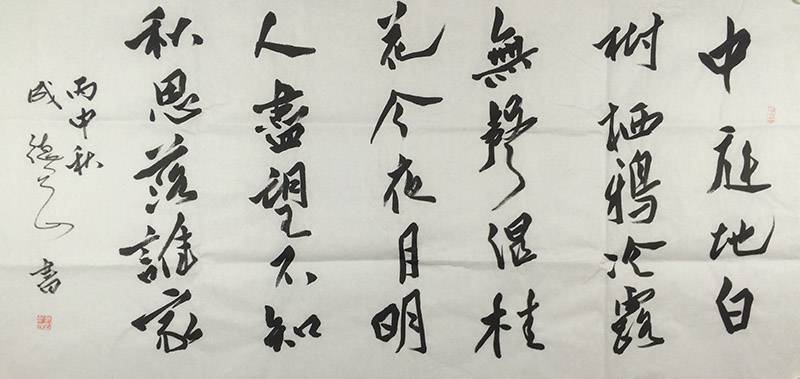 中庭地白
樹栖鴉冷露
無聲濕桂
花今夜月明
人盡望不知
秋思落誰家
丙申秋
成德山書